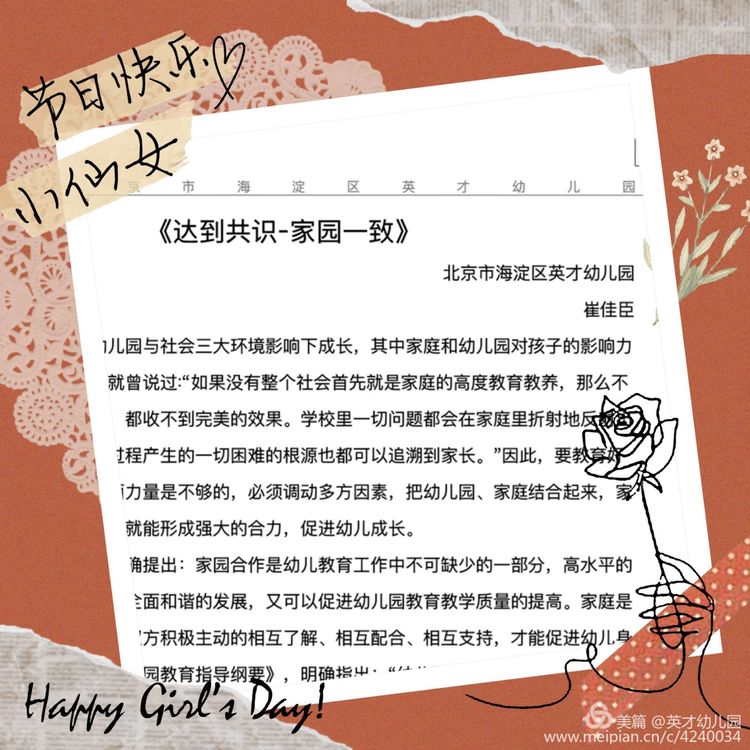 节日快乐
小仙女
京市海淀区英才幼儿园
《达到共识-家园一致》
北京市海淀区英才幼儿园
崔佳臣
儿园与社会三大环境影响下成长，其中家庭和幼儿园对孩子的影响力
就曾说过:“如果没有整个社会首先就是家庭的高度教育教养，那么不
都收不到完美的效果。学校里一切问题都会在家庭里折射地反
过程产生的一切困难的根源也都可以追溯到家长。”因此，要教育好
力量是不够的，必须调动多方因素，把幼儿园、家庭结合起来，家
就能形成强大的合力，促进幼儿成长。
确提出：家园合作是幼儿教育工作中不可缺少的一部分，高水平的
全面和谐的发展，又可以促进幼儿园教育教学质量的提高。家庭是
方积极主动的相互了解、相互配合、相互支持，才能促进幼儿身
园教育指导纲要》，明确指出：
Happy Girl's Day!
美篇 @英才幼儿园
www.meipian.cn/c/4240034